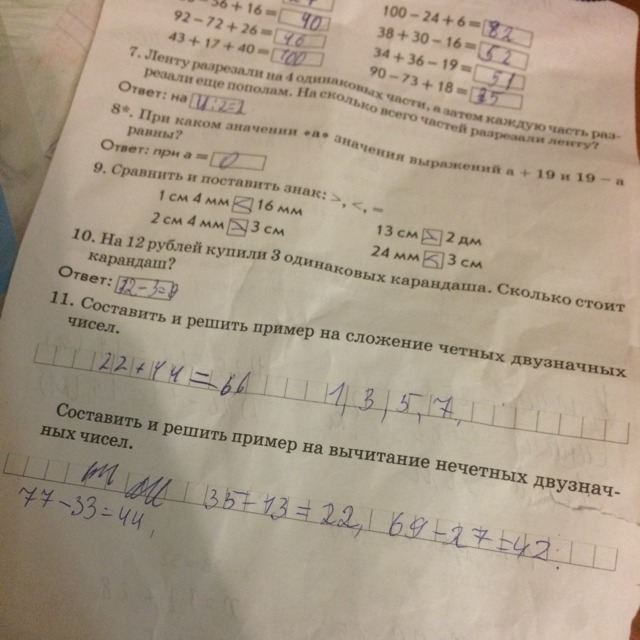 36 + 16 =
92 − 72 + 26 = 46
43 + 17 + 40 = 100
100 − 24 + 6 = 82
38 + 30 − 16 = 52
34 + 36 − 19 = 51
90 − 73 + 18 = 35
7. Ленту разрезали на 4 одинаковых части, а затем каждую часть раз-
резали еще пополам. На сколько всего частей разрезали ленту?
Ответ: на 4:2=2
8*. При каком значении «а» значения выражений а + 19 и 19 − а
равны?
Ответ: при а = 0
9. Сравнить и поставить знак: >, <, =
1 см 4 мм < 16 мм
2 см 4 мм > 3 см
13 см > 2 дм
24 мм < 3 см
10. На 12 рублей купили 3 одинаковых карандаша. Сколько стоит
карандаш?
Ответ: 12−3=9
11. Составить и решить пример на сложение четных двузначных
чисел.
22+44=66 1, 3, 5, 7,
Составить и решить пример на вычитание нечетных двузнач-
ных чисел.
35−13=22, 69−27=42.
77−33=44,